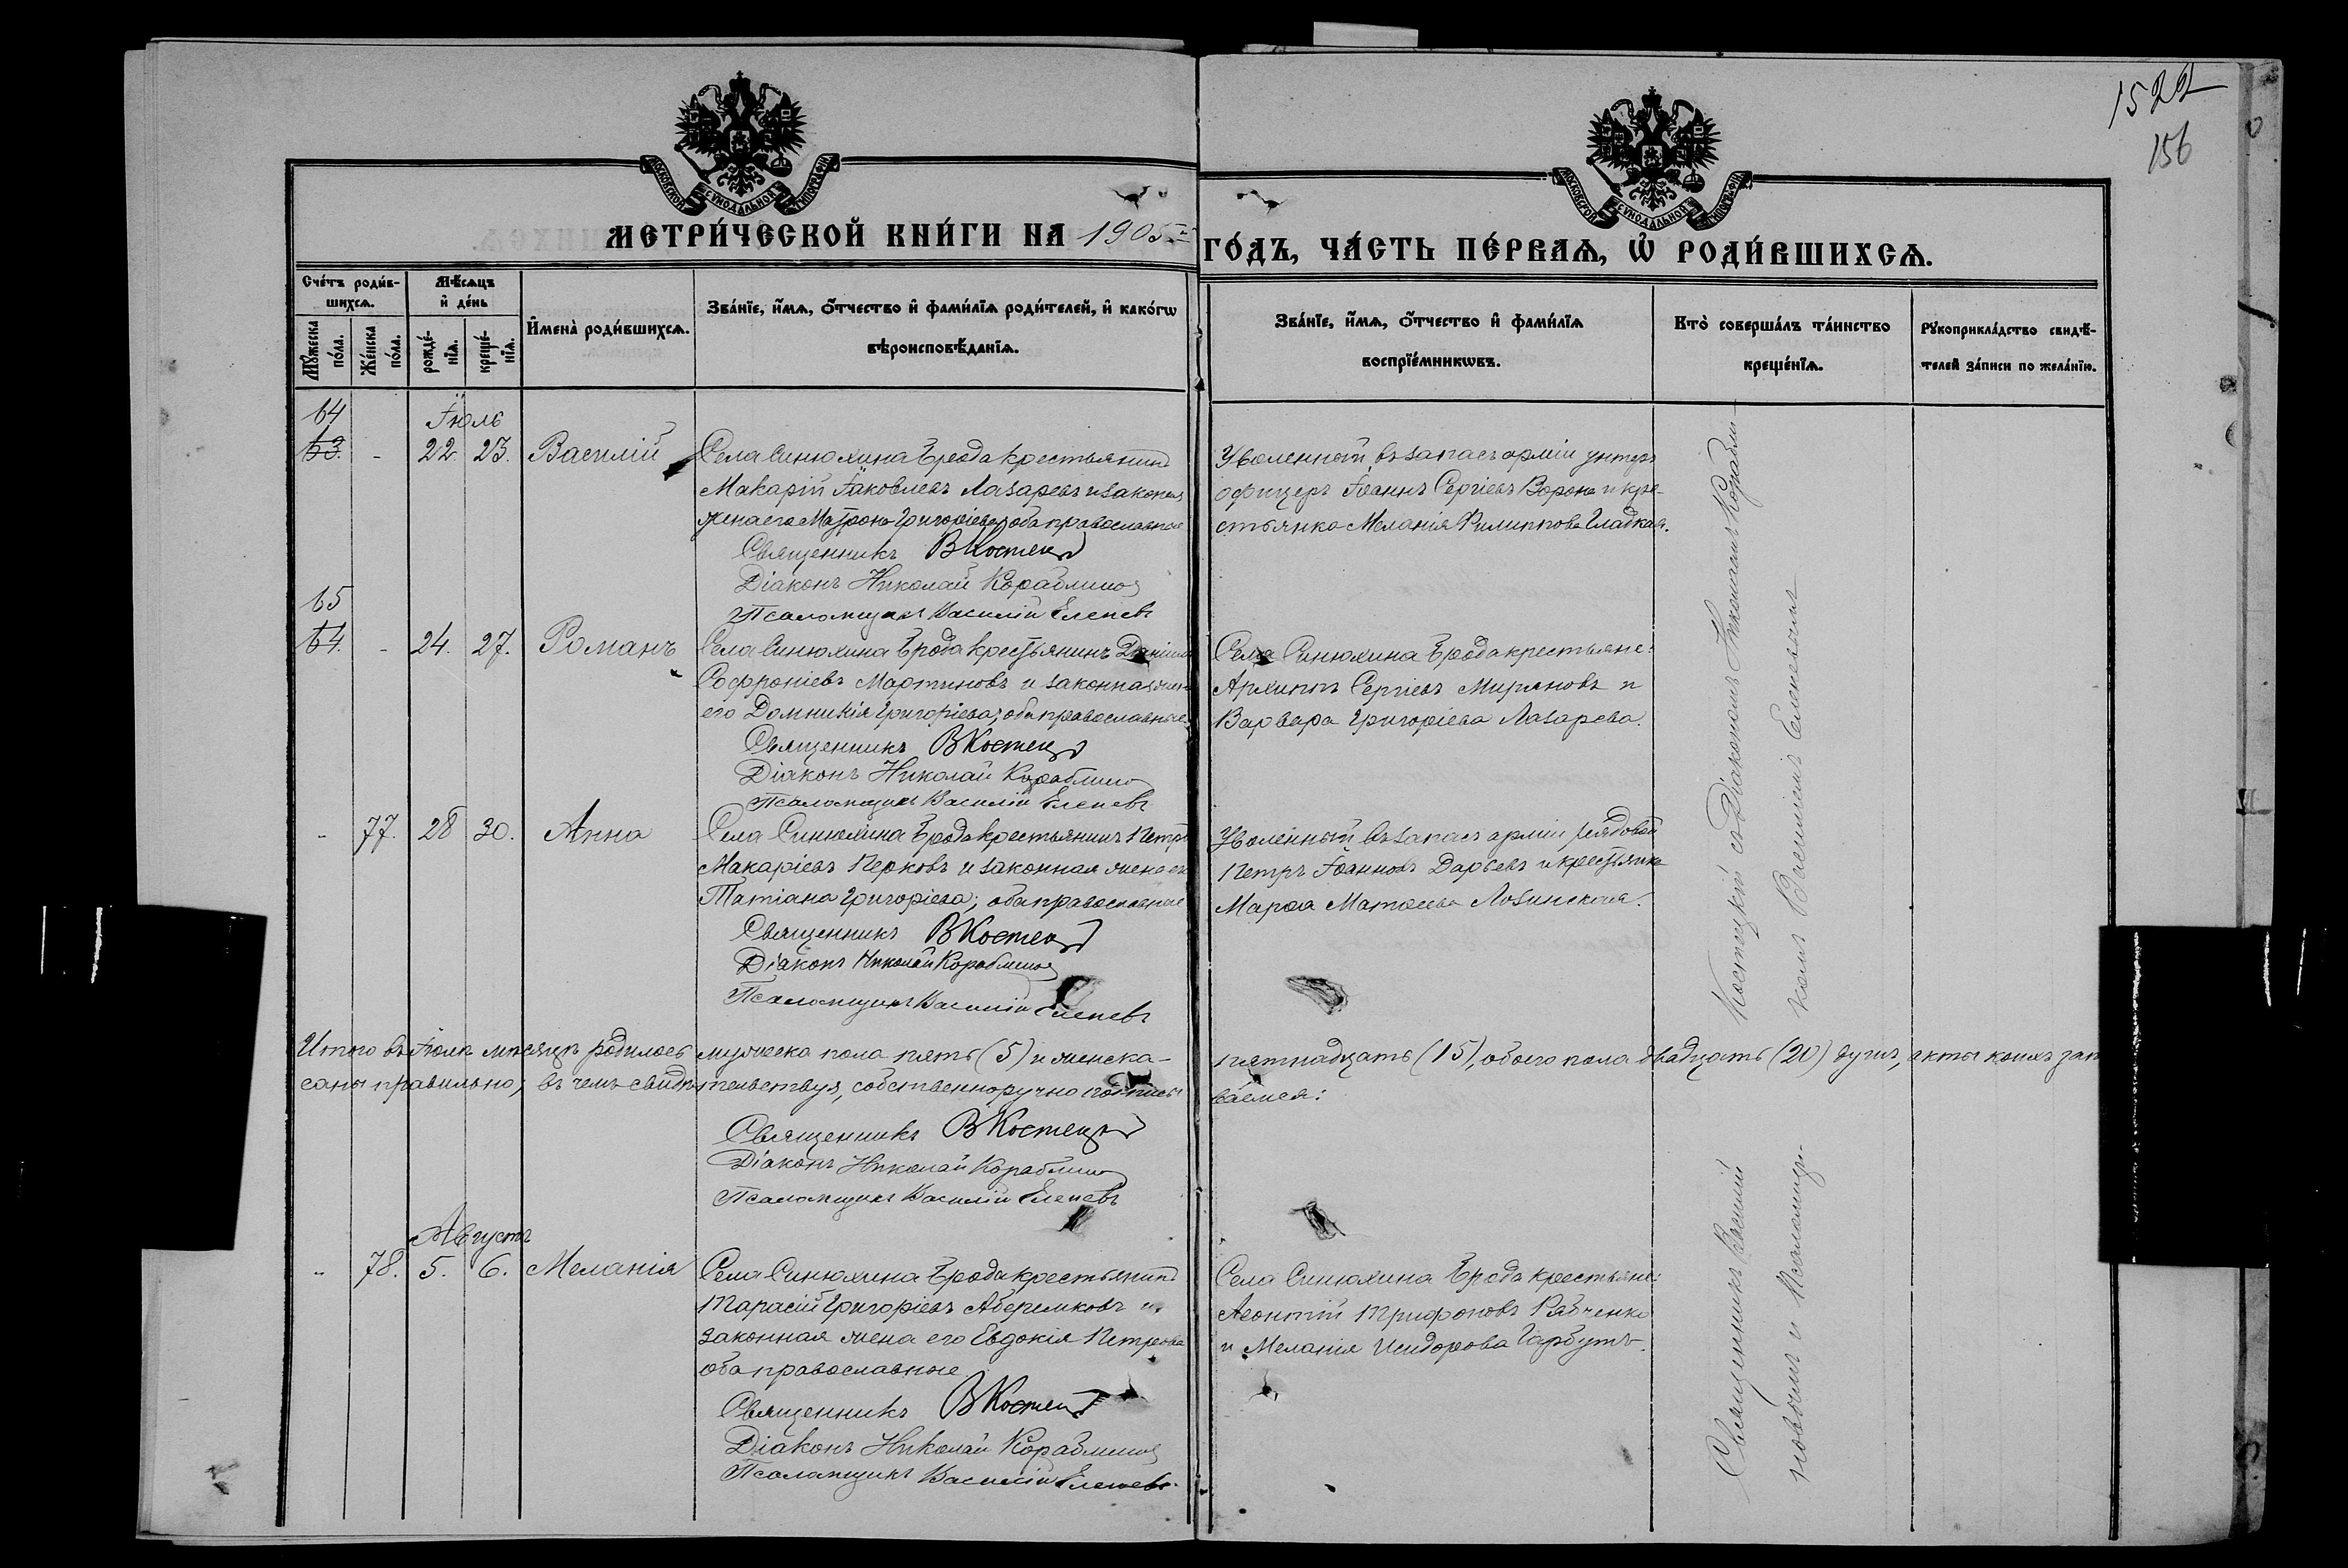 1522
156
МОСКОВСКОЙ СѴНОДАЛЬНОЙ ТИПОГРАФІИ
МОСКОВСКОЙ СѴНОДАЛЬНОЙ ТИПОГРАФІИ
МЕТРИ́ЧЕСКОЙ КНИ́ГИ НА 1905 ГО́ДЪ, ЧА́СТЬ ПЕ́РВАѦ, Ѡ РОДИ́ВШИХСѦ.
Сче́тъ роди́в-
шихсѧ.
Мꙋ́жеска
по́ла.
Же́нска
по́ла.
Мѣ́сѧцъ
и҆ де́нь
рожде́-
нїѧ.
креще́-
нїѧ.
И҆мена̀ роди́вшихсѧ.
Зва́нїе, и҆́мѧ, ѻ҆́тчество и҆ фами́лїѧ роди́телей, и҆ како́гѡ
вѣроисповѣ́данїѧ.
Зва́нїе, и҆́мѧ, ѻ҆́тчество и҆ фами́лїѧ
воспрїе́мникѡвъ.
Кто̀ соверша́лъ та́инство
креще́нїѧ.
Рꙋкоприкла́дство свидѣ́-
телей за́писи по жела́нїю.
64 Іюль
63. - 22. 23. Василій
Села Синюхина Брода крестьянинъ
Макарій Іаковлевъ Лазаревъ и законная
жена его Матрона Григоріева, оба православные
Священникъ В Костец
Діаконъ Николай Кораблиновъ
Псаломщикъ Василій Еленевъ
Уволенный въ запасъ арміи унтеръ
офицеръ Іоаннъ Сергіевъ Ворона и кре-
стьянка Меланія Филиппова Гладкая.
65
64. - 24. 27. Романъ
Села Синюхина Брода крестьянинъ Даніилъ
Софроніевъ Мартиновъ и законная жена
его Домникія Григоріева; оба православные
Священникъ В Костец
Діаконъ Николай Кораблиновъ
Псаломщикъ Василій Еленевъ
Села Синюхина Брода крестьяне:
Архиппъ Сергіевъ Миряновъ и
Варвара Григоріева Лазарева.
- 77. 28 30. Анна
Села Синюхина Брода крестьянинъ Петръ
Макаріевъ Перковъ и законная жена его
Татіана Григоріева; оба православные
Священникъ В Костец
Діаконъ Николай Кораблиновъ
Псаломщикъ Василій Еленевъ
Уволенный въ запасъ арміи рядовой
Петръ Іоанновъ Дарьевъ и крестьянка
Марѳа Матѳеева Лозинская.
Итого въ Іюлѣ мѣсяцѣ родилось мужеска пола пять (5) и женска- пятнадцать (15), обоего пола двадцать (20) душъ, акты коихъ запи
саны правильно, въ чемъ свидѣтельствуя, собственноручно подписы ваемся:
Священникъ В Костец
Діаконъ Николай Кораблиновъ
Псаломщикъ Василій Еленевъ
Августъ
- 78. 5. 6. Меланія
Села Синюхина Брода крестьянинъ
Тарасій Григоріевъ Аберемковъ и
законная жена его Евдокія Петрова
оба православные
Священникъ В Костец
Діаконъ Николай Кораблиновъ
Псаломщикъ Василій Еленевъ.
Села Синюхина Брода крестьяне:
Леонтій Трифоновъ Рябченко
и Меланія Исидорова Гарбутъ.
Священникъ Василій Костецкій съ Діакономъ Николаемъ Корабли-
новымъ и Псаломщи- комъ Василіемъ Еленевымъ